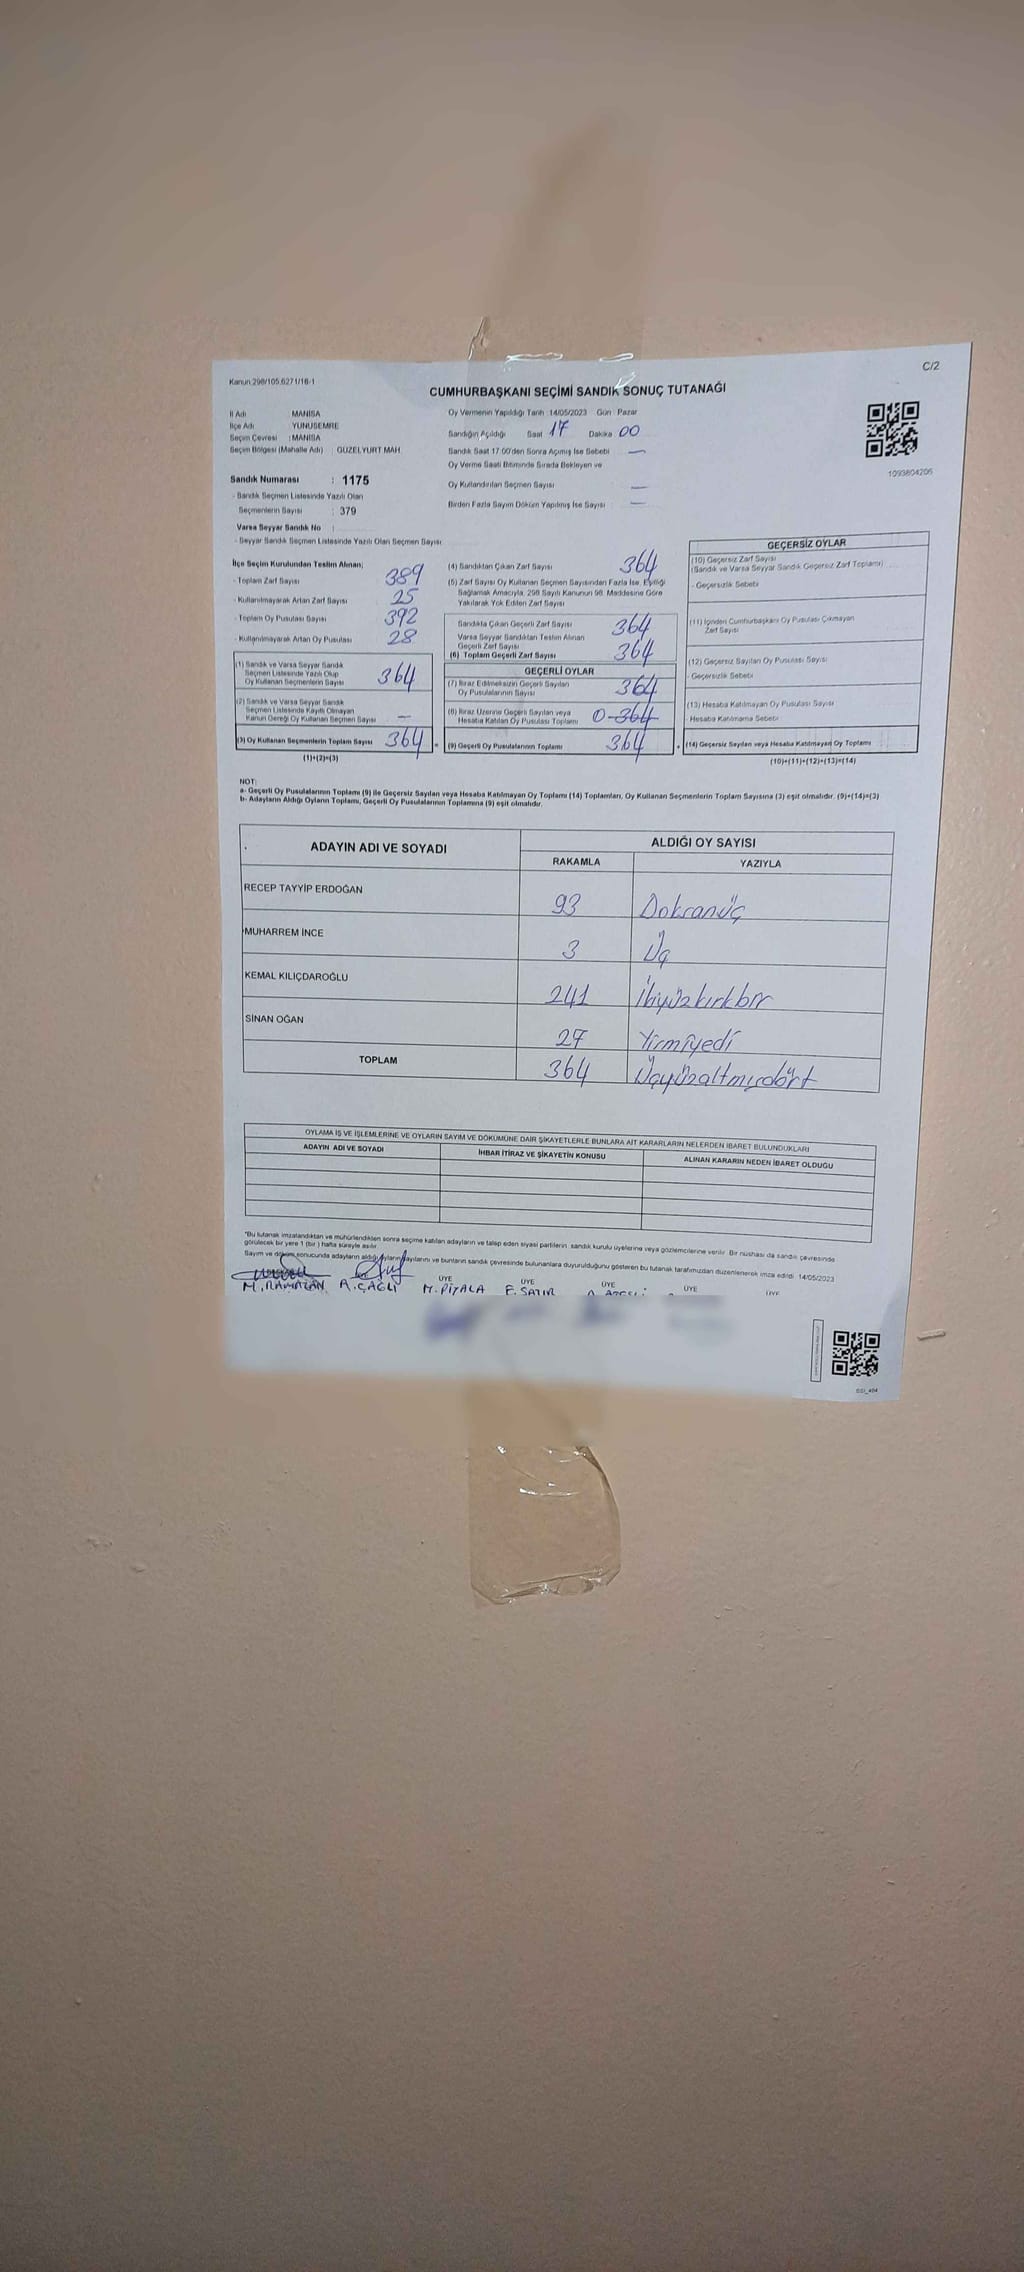 Kanun:298/105,6271/16-1
C/2
CUMHURBAŞKANI SEÇİMİ SANDIK SONUÇ TUTANAĞI
İl Adı MANİSA
İlçe Adı YUNUSEMRE
Seçim Çevresi : MANİSA
Seçim Bölgesi (Mahalle Adı) : GÜZELYURT MAH.
Sandık Numarası : 1175
- Sandık Seçmen Listesinde Yazılı Olan
Seçmenlerin Sayısı : 379
Varsa Seyyar Sandık No :
- Seyyar Sandık Seçmen Listesinde Yazılı Olan Seçmen Sayısı:
Oy Vermenin Yapıldığı Tarih :14/05/2023 Gün : Pazar
Sandığın Açıldığı Saat 17 Dakika 00
Sandık Saat 17:00'den Sonra Açılmış İse Sebebi —
Oy Verme Saati Bitiminde Sırada Bekleyen ve
Oy Kullandırılan Seçmen Sayısı —
Birden Fazla Sayım Döküm Yapılmış İse Sayısı : —
1093804206
İlçe Seçim Kurulundan Teslim Alınan;
- Toplam Zarf Sayısı 389
- Kullanılmayarak Artan Zarf Sayısı 25
- Toplam Oy Pusulası Sayısı 392
- Kullanılmayarak Artan Oy Pusulası 28
(1) Sandık ve Varsa Seyyar Sandık
Seçmen Listesinde Yazılı Olup
Oy Kullanan Seçmenlerin Sayısı 364
(2) Sandık ve Varsa Seyyar Sandık
Seçmen Listesinde Kayıtlı Olmayan
Kanun Gereği Oy Kullanan Seçmen Sayısı —
(3) Oy Kullanan Seçmenlerin Toplam Sayısı 364 =
(1)+(2)=(3)
(4) Sandıktan Çıkan Zarf Sayısı 364
(5) Zarf Sayısı Oy Kullanan Seçmen Sayısından Fazla İse, Eşitliği
Sağlamak Amacıyla, 298 Sayılı Kanunun 98. Maddesine Göre
Yakılarak Yok Edilen Zarf Sayısı
Sandıkta Çıkan Geçerli Zarf Sayısı 364
Varsa Seyyar Sandıktan Teslim Alınan
Geçerli Zarf Sayısı
(6) Toplam Geçerli Zarf Sayısı 364
GEÇERLİ OYLAR
(7) İtiraz Edilmeksizin Geçerli Sayılan
Oy Pusulalarının Sayısı 364
(8) İtiraz Üzerine Geçerli Sayılan veya
Hesaba Katılan Oy Pusulası Toplamı 0-364
(9) Geçerli Oy Pusulalarının Toplamı 364 +
GEÇERSİZ OYLAR
(10) Geçersiz Zarf Sayısı
(Sandık ve Varsa Seyyar Sandık Geçersiz Zarf Toplamı)
- Geçersizlik Sebebi
(11) İçinden Cumhurbaşkanı Oy Pusulası Çıkmayan
Zarf Sayısı
(12) Geçersiz Sayılan Oy Pusulası Sayısı
- Geçersizlik Sebebi
(13) Hesaba Katılmayan Oy Pusulası Sayısı
- Hesaba Katılmama Sebebi
(14) Geçersiz Sayılan veya Hesaba Katılmayan Oy Toplamı
(10)+(11)+(12)+(13)=(14)
NOT:
a- Geçerli Oy Pusulalarının Toplamı (9) ile Geçersiz Sayılan veya Hesaba Katılmayan Oy Toplamı (14) Toplamları, Oy Kullanan Seçmenlerin Toplam Sayısına (3) eşit olmalıdır. (9)+(14)=(3)
b- Adayların Aldığı Oyların Toplamı, Geçerli Oy Pusulalarının Toplamına (9) eşit olmalıdır.
ADAYIN ADI VE SOYADI ALDIĞI OY SAYISI
RAKAMLA YAZIYLA
RECEP TAYYİP ERDOĞAN 93 Doksanüç
MUHARREM İNCE 3 Üç
KEMAL KILIÇDAROĞLU 241 İkiyüzkırkbir
SİNAN OĞAN 27 Yirmiyedi
TOPLAM 364 Üçyüzaltmışdört
OYLAMA İŞ VE İŞLEMLERİNE VE OYLARIN SAYIM VE DÖKÜMÜNE DAİR ŞİKAYETLERLE BUNLARA AİT KARARLARIN NELERDEN İBARET BULUNDUKLARI
ADAYIN ADI VE SOYADI İHBAR İTİRAZ VE ŞİKAYETİN KONUSU ALINAN KARARIN NEDEN İBARET OLDUĞU
*Bu tutanak imzalandıktan ve mühürlendikten sonra seçime katılan adayların ve talep eden siyasi partilerin sandık kurulu üyelerine veya gözlemcilerine verilir. Bir nüshası da sandık çevresinde
görülecek bir yere 1 (bir ) hafta süreyle asılır.
Sayım ve döküm sonucunda adayların aldığı oyların sayılarını ve bunların sandık çevresinde bulunanlara duyurulduğunu gösteren bu tutanak tarafımızdan düzenlenerek imza edildi. 14/05/2023
ÜYE ÜYE ÜYE ÜYE ÜYE
M.RAMAZAN A.ÇAĞLI M.PİYALA F.SATIR